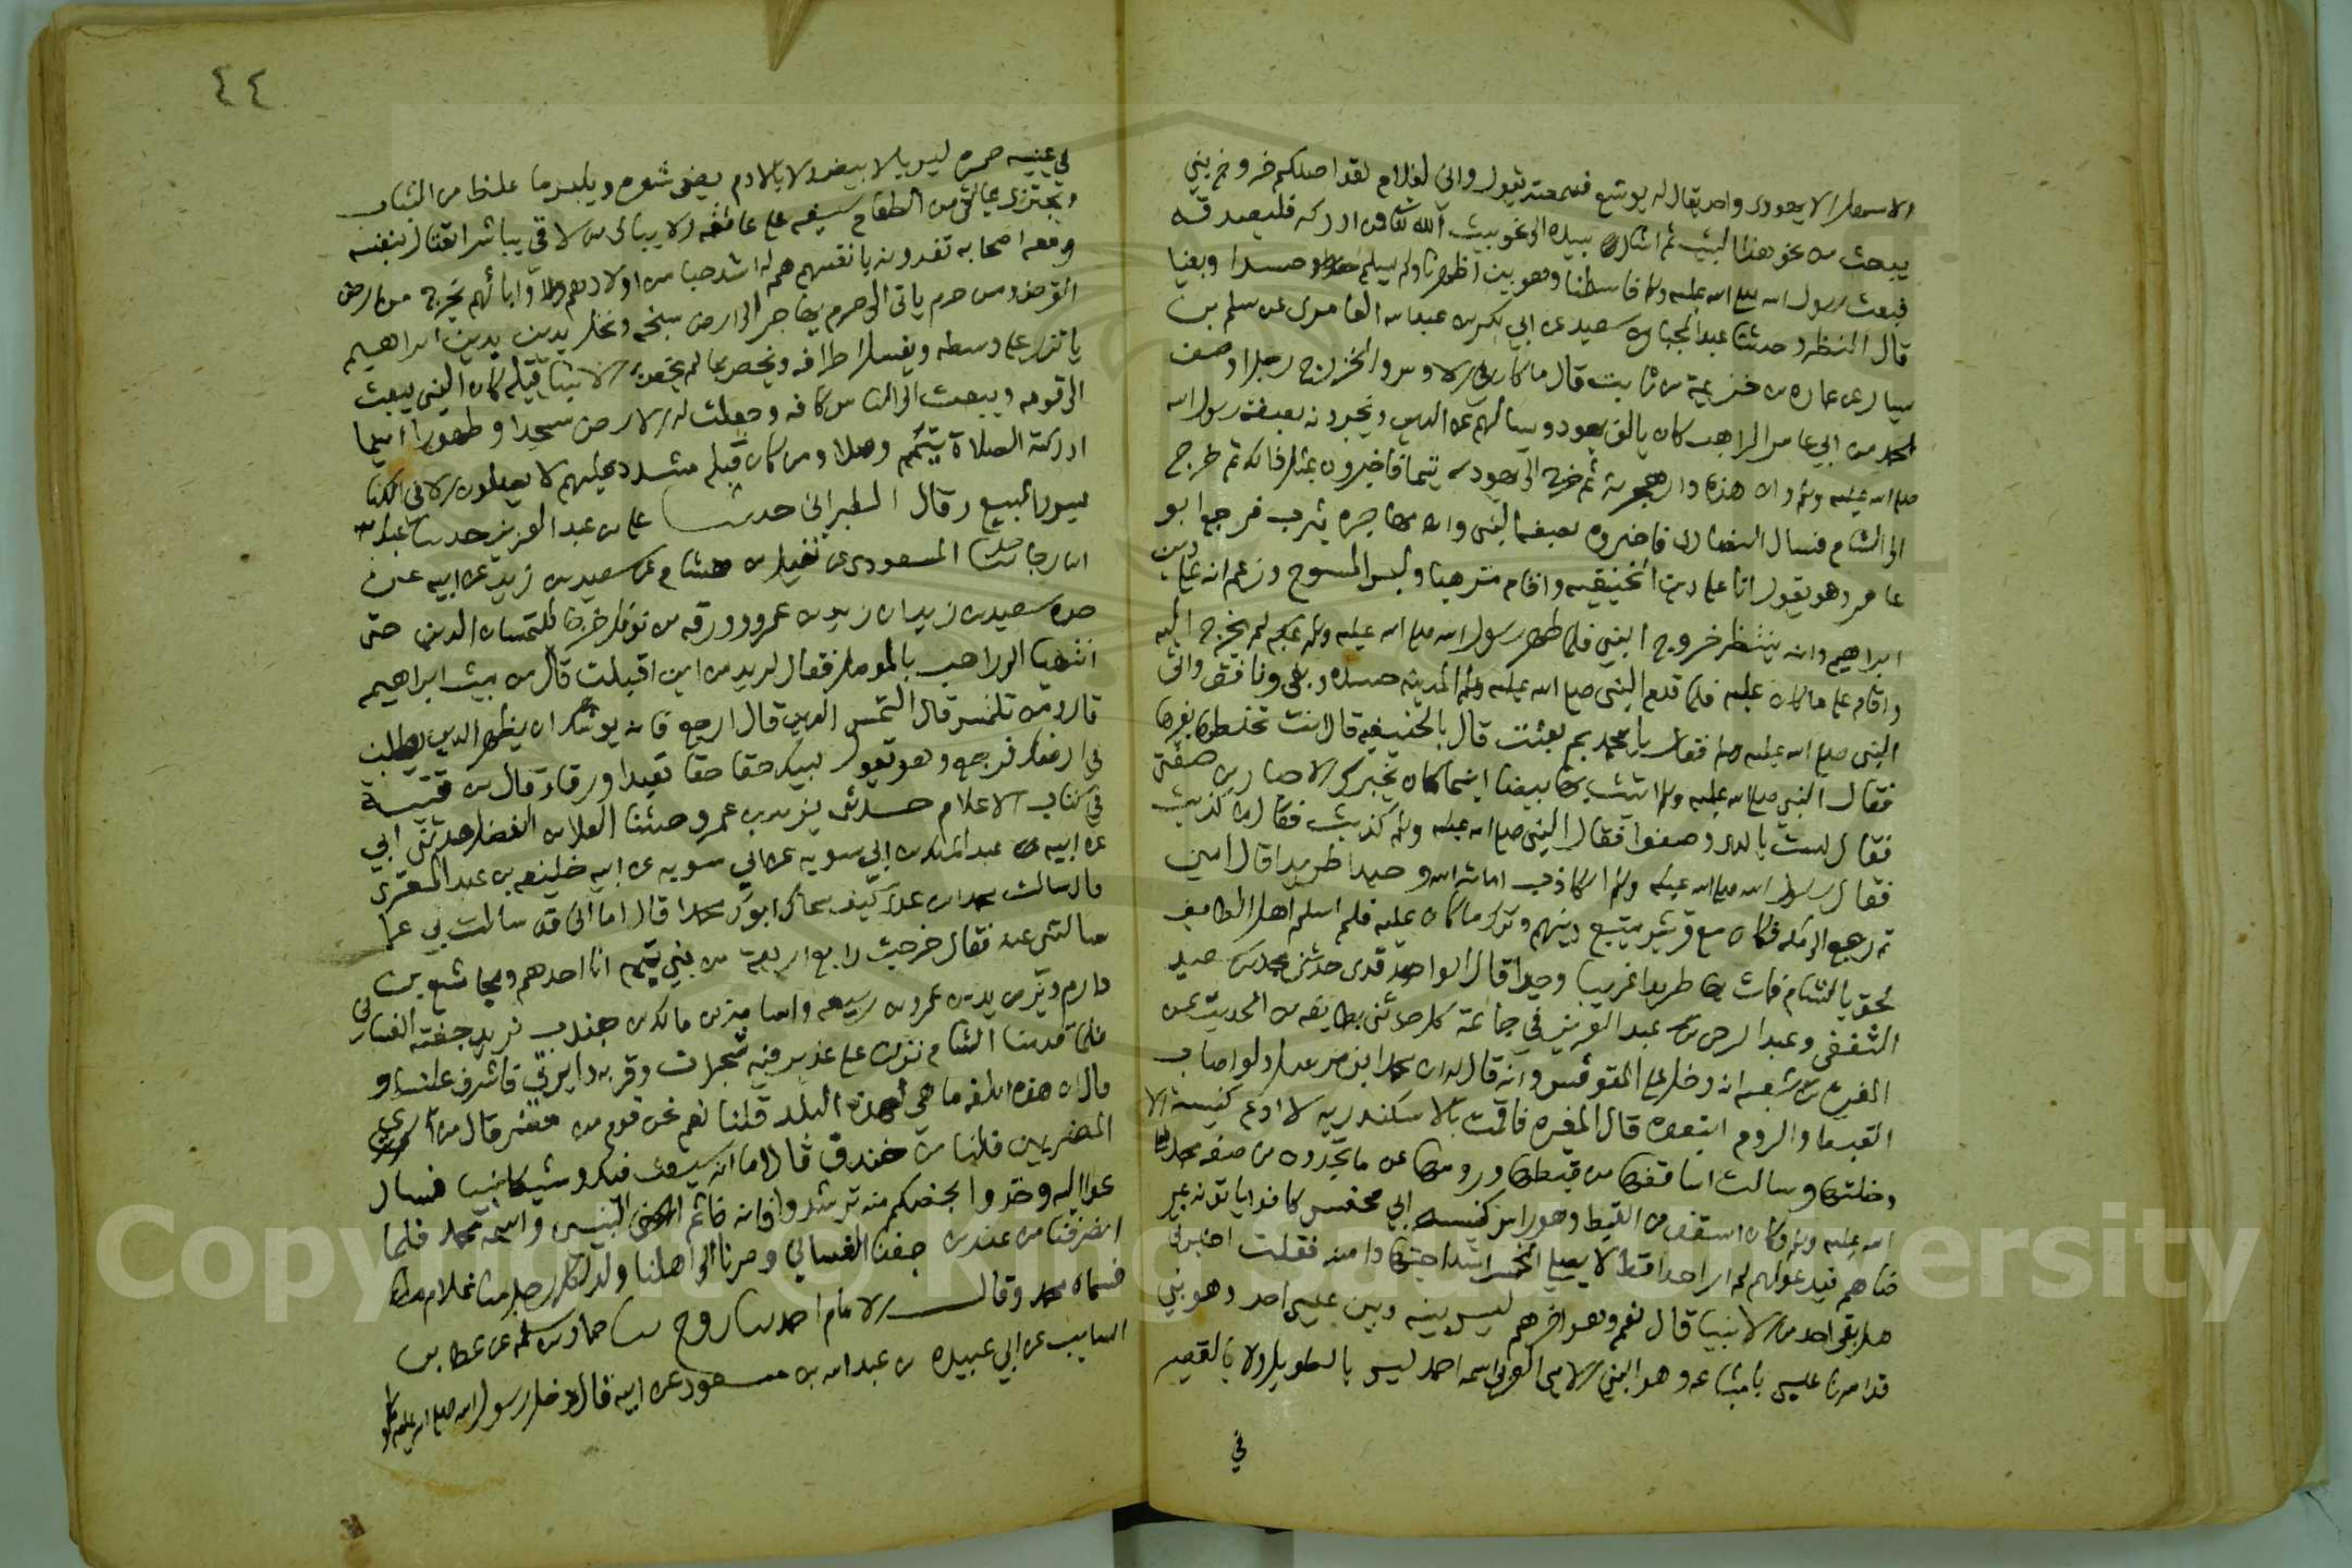 الاسهل الا يهودى واحد يقال له يوشع فسمعته يقول وانى لغلام لقد اظلكم خروج نبي
يبعث من نحو هذا البيت ثم اشار بيده الى نحو بيت الله فمن ادركه فليصدقه
فبعث رسول الله صلى الله عليه وسلم فاسلمنا وهو بين اظهرنا ولم يسلم حسدا وبغيا
قال النضر وحدثنا عبد الجبار بن سعيد عن ابي بكر بن عبد الله العامرى عن سلم بن
يسار عن عماره بن خزيمة بن ثابت قال ما كان في الاوس والخزرج رجل اوصف
لمحمد من ابي عامر الراهب كان يالف يهود ويسالهم عن الدين ويخبرونه بصفة رسول الله
صلى الله عليه وسلم وان هذه دار هجرته ثم خرج الى يهود تيما فاخبروه بمثل ذلك ثم خرج
الى الشام فسال النصارى فاخبروه بصفة النبى وان مهاجره يثرب فرجع ابو
عامر وهو يقول انا على دين الحنيفيه واقام مترهبا ولبس المسوح وزعم انه على دين
ابراهيم وانه ينتظر خروج النبي فلما ظهر رسول الله صلى الله عليه وسلم بمكه لم يخرج اليه
واقام على ما كان عليه فلما قدم النبى صلى الله عليه وسلم المدينه حسده وبغى ونافق واتى
النبى صلى الله عليه وسلم فقال يا محمد بم بعثت قال بالحنيفيه قال انت تخلطها بغيرها
فقال النبي صلى الله عليه وسلم اتيت بها بيضا اينما كان يخبرك الاحبار من صفتى
فقال لست بالذى وصفوا فقال النبى صلى الله عليه وسلم كذبت فقال ما كذبت
فقال رسول الله صلى الله عليه وسلم الكاذب اماته الله وحيدا طريدا قال امين
ثم رجع الى مكه فكان مع قريش يتبع دينهم وترك ما كان عليه فلم اسلم اهل الطايف
لحق بالشام فمات بها طريدا غريبا وحيدا قال الواحد قدى حدثنى محمد بن سعيد
الثقفى وعبد الرحمن بن عبد العزيز في جماعة كل حدثنى بطايفه من الحديث عن
المغيره بن شعبه انه دخل على المقوقس وانه قال له ان محمدا نبى مرسل ولو اصاب
القبط والروم اتبعوه قال المغيره فاقمت بالاسكندريه لا ادع كنيسة الا
دخلتها وسالت اساقفها من قبطها ورومها عن ما يجدون من صفه محمد صلى
الله عليه وسلم وكان اسقف من القبط وهو راس كنيسه ابي محنس كانوا ياتونه بمر
ضاهم فيدعو لهم لم ار احدا قط لا يصلى الخمس اشد اجتهادا منه فقلت اخبرنى
هل بقى احد من الانبيا قال نعم وهو اخرهم ليس بينه وبين عيسى احد وهو نبي
قد امرنا عيسى باتباعه وهو النبي الامى العربى اسمه احمد ليس بالطويل ولا بالقصير
في
٤٤
في عينيه حمره ليس بالابيض ولا بالادم يعفى شعره ويلبس ما غلظ من الثياب
ويجتزى بما لقى من الطعام سيفه على عاتقه ولا يبالى من لاقى يباشر القتال بنفسه
ومعه اصحابه تفدونه بانفسهم هم له اشد حبا من اولادهم وابائهم يخرج من ارض
القرض ومن حرم ياتى الى حرم يهاجر الى ارض سبخه ونخل يدين بدين ابراهيم
ياتزر على وسطه ويغسل اطرافه ويخص بما لم يخص الانبيا قبله كان النبى يبعث
الى قومه ويبعث الى الناس كافه وجعلت له الارض مسجدا وطهورا اينما
ادركته الصلاة تيمم وصلا ومن كان قبله مشدد عليهم لا يصلون الا في الكنا
يس والبيع وقال الطبرانى حدثنا على بن عبد العزيز حدثنا عبد الله
ابن رجا حدثنا المسعودى عن نفيل بن هشام عن سعيد بن زيد عن ابيه عن
جده سعيد بن زيد ان زيد بن عمرو وورقه بن نوفل خرجا يلتمسان الدين حتى
انتهيا الى راهب بالموصل فقال لزيد من اين اقبلت قال من بيت ابراهيم
قال وما تلتمس قال التمس الدين قال ارجع فانه يوشك ان يظهر الدين الذي تطلب
في ارضك فرجع وهو يقول لبيك حقا حقا تعبدا ورقا وقال بن قتيبة
في كتاب الاعلام حدثنى يزيد بن عمرو حدثنا العلا بن الفضل حدثنى ابي
عن ابيه عن عبد الملك بن ابي سويه عن ابي سويه عن ابيه خليفه بن عبد المنقرى
قال سالت محمد بن عدى كيف سماك ابوك محمدا قال اما انى قد سالت ابي عما
سالتنى عنه فقال خرجت رابع اربعة من بني تميم انا احدهم ومجاشع بن
دارم ويزيد بن عمرو بن ربيعه واسامة بن مالك بن جندب نريد جفنه الغسانى
فلما قدمنا الشام نزلنا على غدير فيه شجرات وقربه دايرنى فاشرف علينا و
قال ان هذه للغه ما هي لهذه البلد قلنا نعم نحن قوم من مضر قال من اى
المضريين قلنا من خندق قال اما انه سيبعث فيكم وشيكا نبيا فسار
عوا اليه وخذوا بحضكم منه ترشدوا فانه خاتم النبيين واسمه محمد فلما
انصرفنا من عند بن جفنه الغسانى وصرنا الى اهلنا ولد لكل رجل منا غلام
فسماه محمد وقال الامام احمد حدثنا روح حدثنا حماد بن سلمه عن عطا بن
السايب عن ابي عبيده بن عبد الله بن مسعود عن ابيه قال دخل رسول الله صلى الله عليه وسلم
Copyright © King Saud University